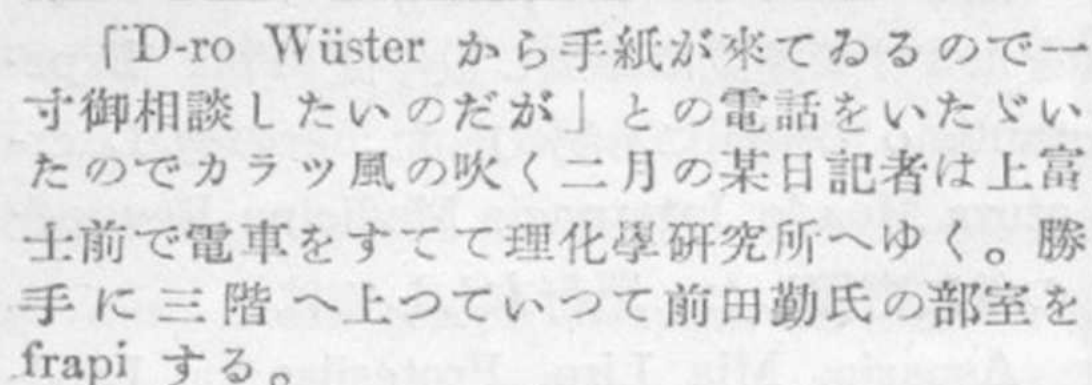 「D-ro Wüster から手紙が來てゐるので一
寸御相談したいのだが」との電話をいたゞい
たのでカラツ風の吹く二月の某日記者は上富
士前で電車をすてて理化學研究所へゆく。勝
手に三階へ上つていつて前田勤氏の部室を
frapi する。